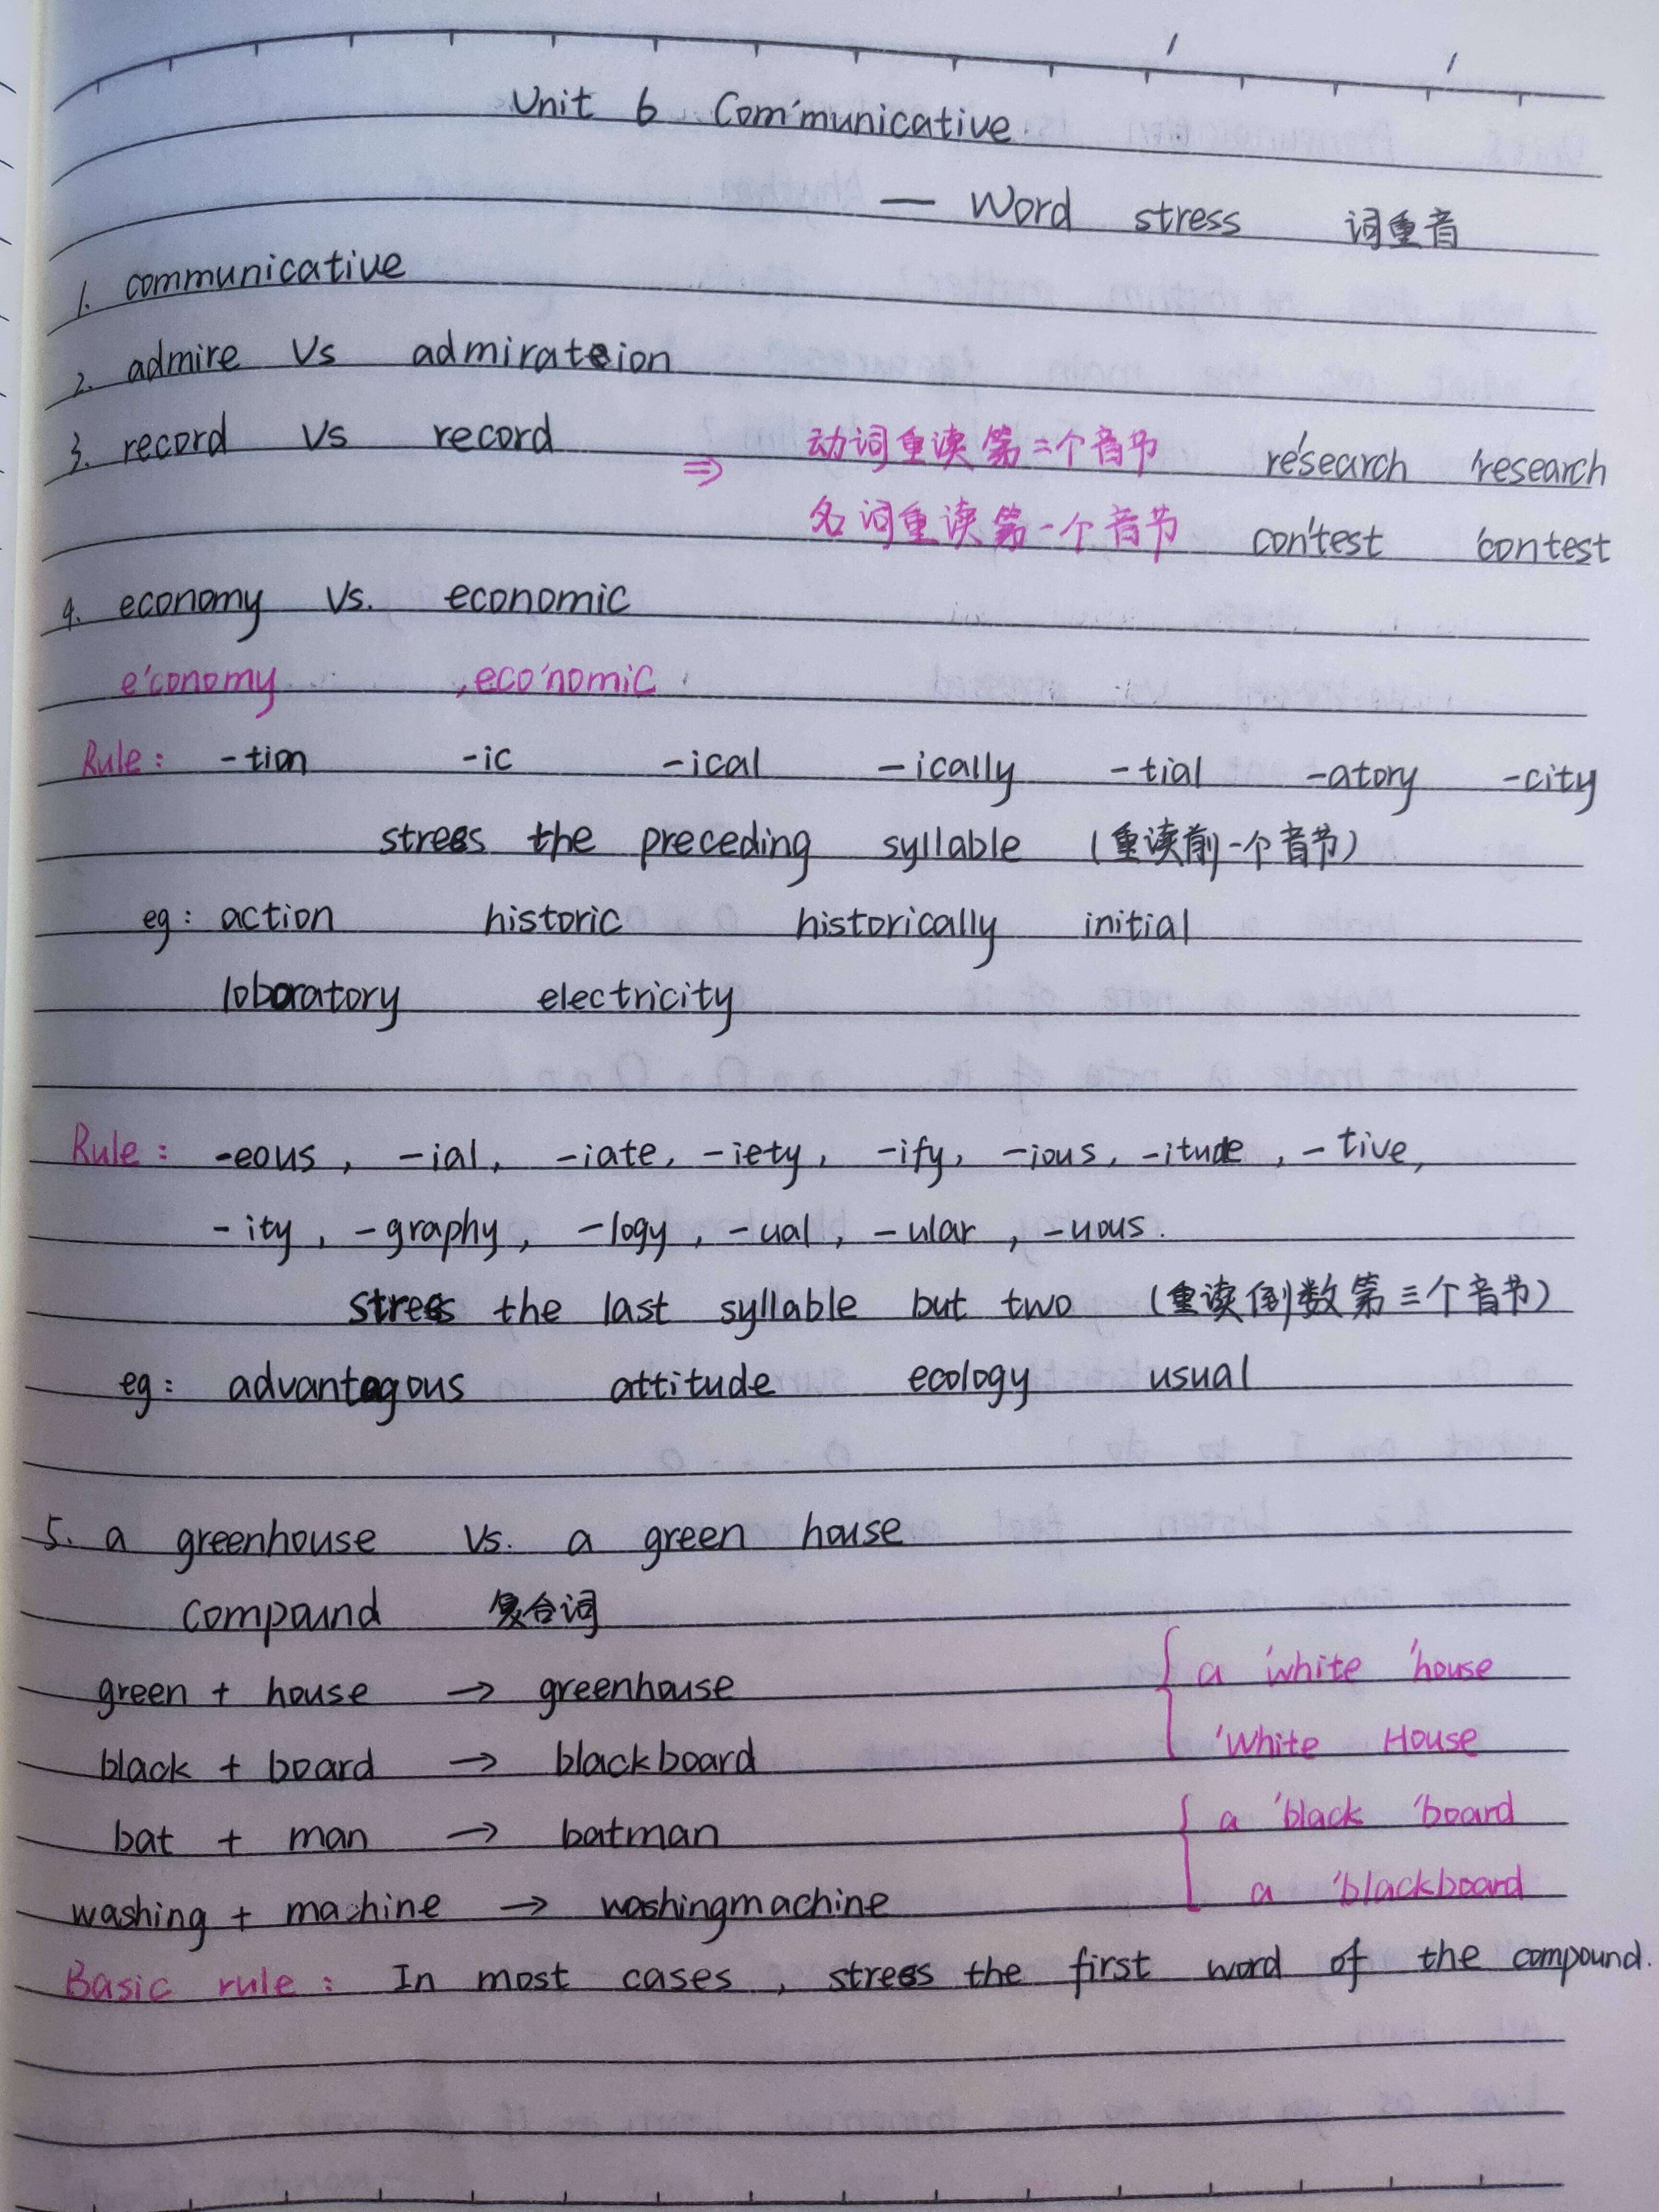 Unit 6 Com'municative
— Word stress 词重音
1. communicative
2. admire Vs admirateion
3. record Vs record ⇒ 动词重读第二个音节 re'search 'research
名词重读第一个音节 con'test 'contest
4. economy Vs. economic
e'conomy ,eco'nomic
Rule: -tion -ic -ical -ically -tial -atory -city
stress the preceding syllable (重读前一个音节)
eg: action historic historically initial
loboratory electricity
Rule: -eous, -ial, -iate, -iety, -ify, -ious, -itude, -tive,
-ity, -graphy, -logy, -ual, -ular, -uous.
stress the last syllable but two (重读倒数第三个音节)
eg: advantagous attitude ecology usual
5. a greenhouse Vs. a green house
compound 复合词
green + house → greenhouse { a 'white 'house
'White House
black + board → blackboard
bat + man → batman { a 'black 'board
a 'blackboard
washing + machine → washingmachine
Basic rule: In most cases, stress the first word of the compound.